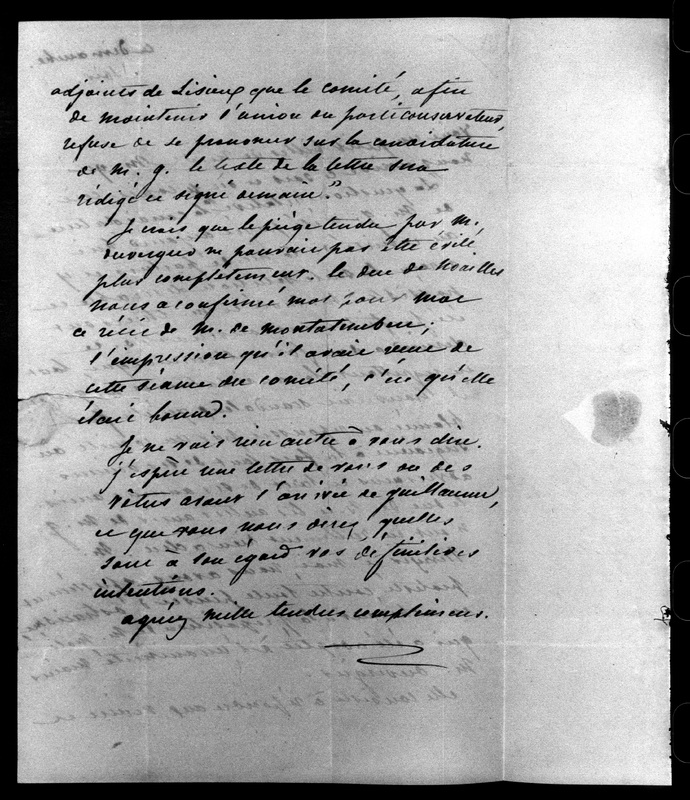 adjoints de Lisieux que le comité, afin
de maintenir l'union du parti conservateur,
refuse de se prononcer sur la candidature
de m. g. le texte de la lettre sera
rédigé et signé demain."
Je crois que le piège tendu par m.
duvergier ne pouvait pas être évité
plus complètement. le duc de Noailles
nous a confirmé mot pour mot
ce récit de m. de montalembert;
l'impression qu'il avait reçue de
cette séance du comité, c'est qu'elle
était bonne.
Je ne vois rien autre à vous dire.
j'espère une lettre de vous ou des
vôtres avant l'arrivée de guillaume,
et que vous nous direz quelles
sont à son égard vos définitives
intentions.
agréez mille tendres complimens.